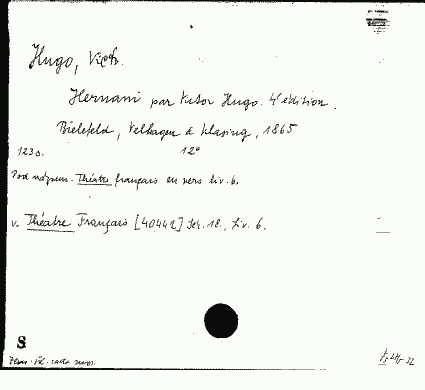 Hugo, Victor.
Hernani par Victor Hugo. 4e édition.
Bielefeld, Velhagen & Klasing, 1865
123 s. 12°
Pod názvem: Théâtre français en vers liv. 6.
v. Théatre Français [40442] Ser. 18., Liv. 6.
S